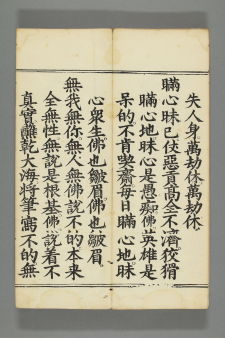 失人身萬劫休萬劫休
瞞心昧己伏惡貢高全不濟狡猾
瞞心地昧心是愚痴佛英雄是
呆的不肯喫齋每日瞞心地昧
心衆生佛也皺眉佛也皺眉
無我無你無人無佛説不的本来
全無性無説是根基佛説着不
真實離乾大海將筆寫不的無